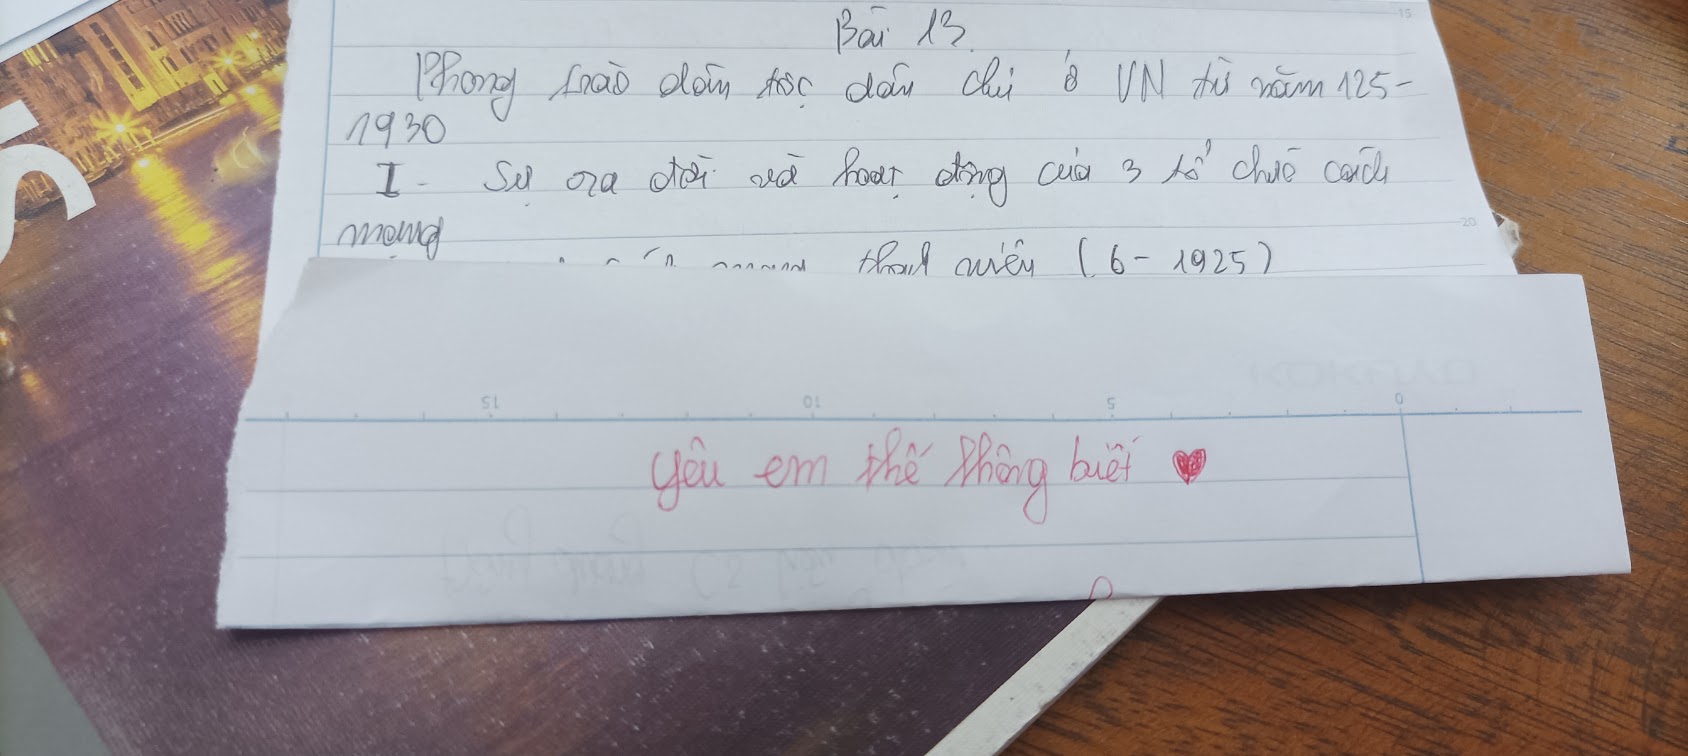 Bài 13.
Phong trào dân tộc dân chủ ở VN từ năm 125-
1930
I - Sự ra đời và hoạt động của 3 tổ chức cách
mạng
mạng thanh niên (6 - 1925)
15
20
15 10 5 0
yêu em thế không biết ♥